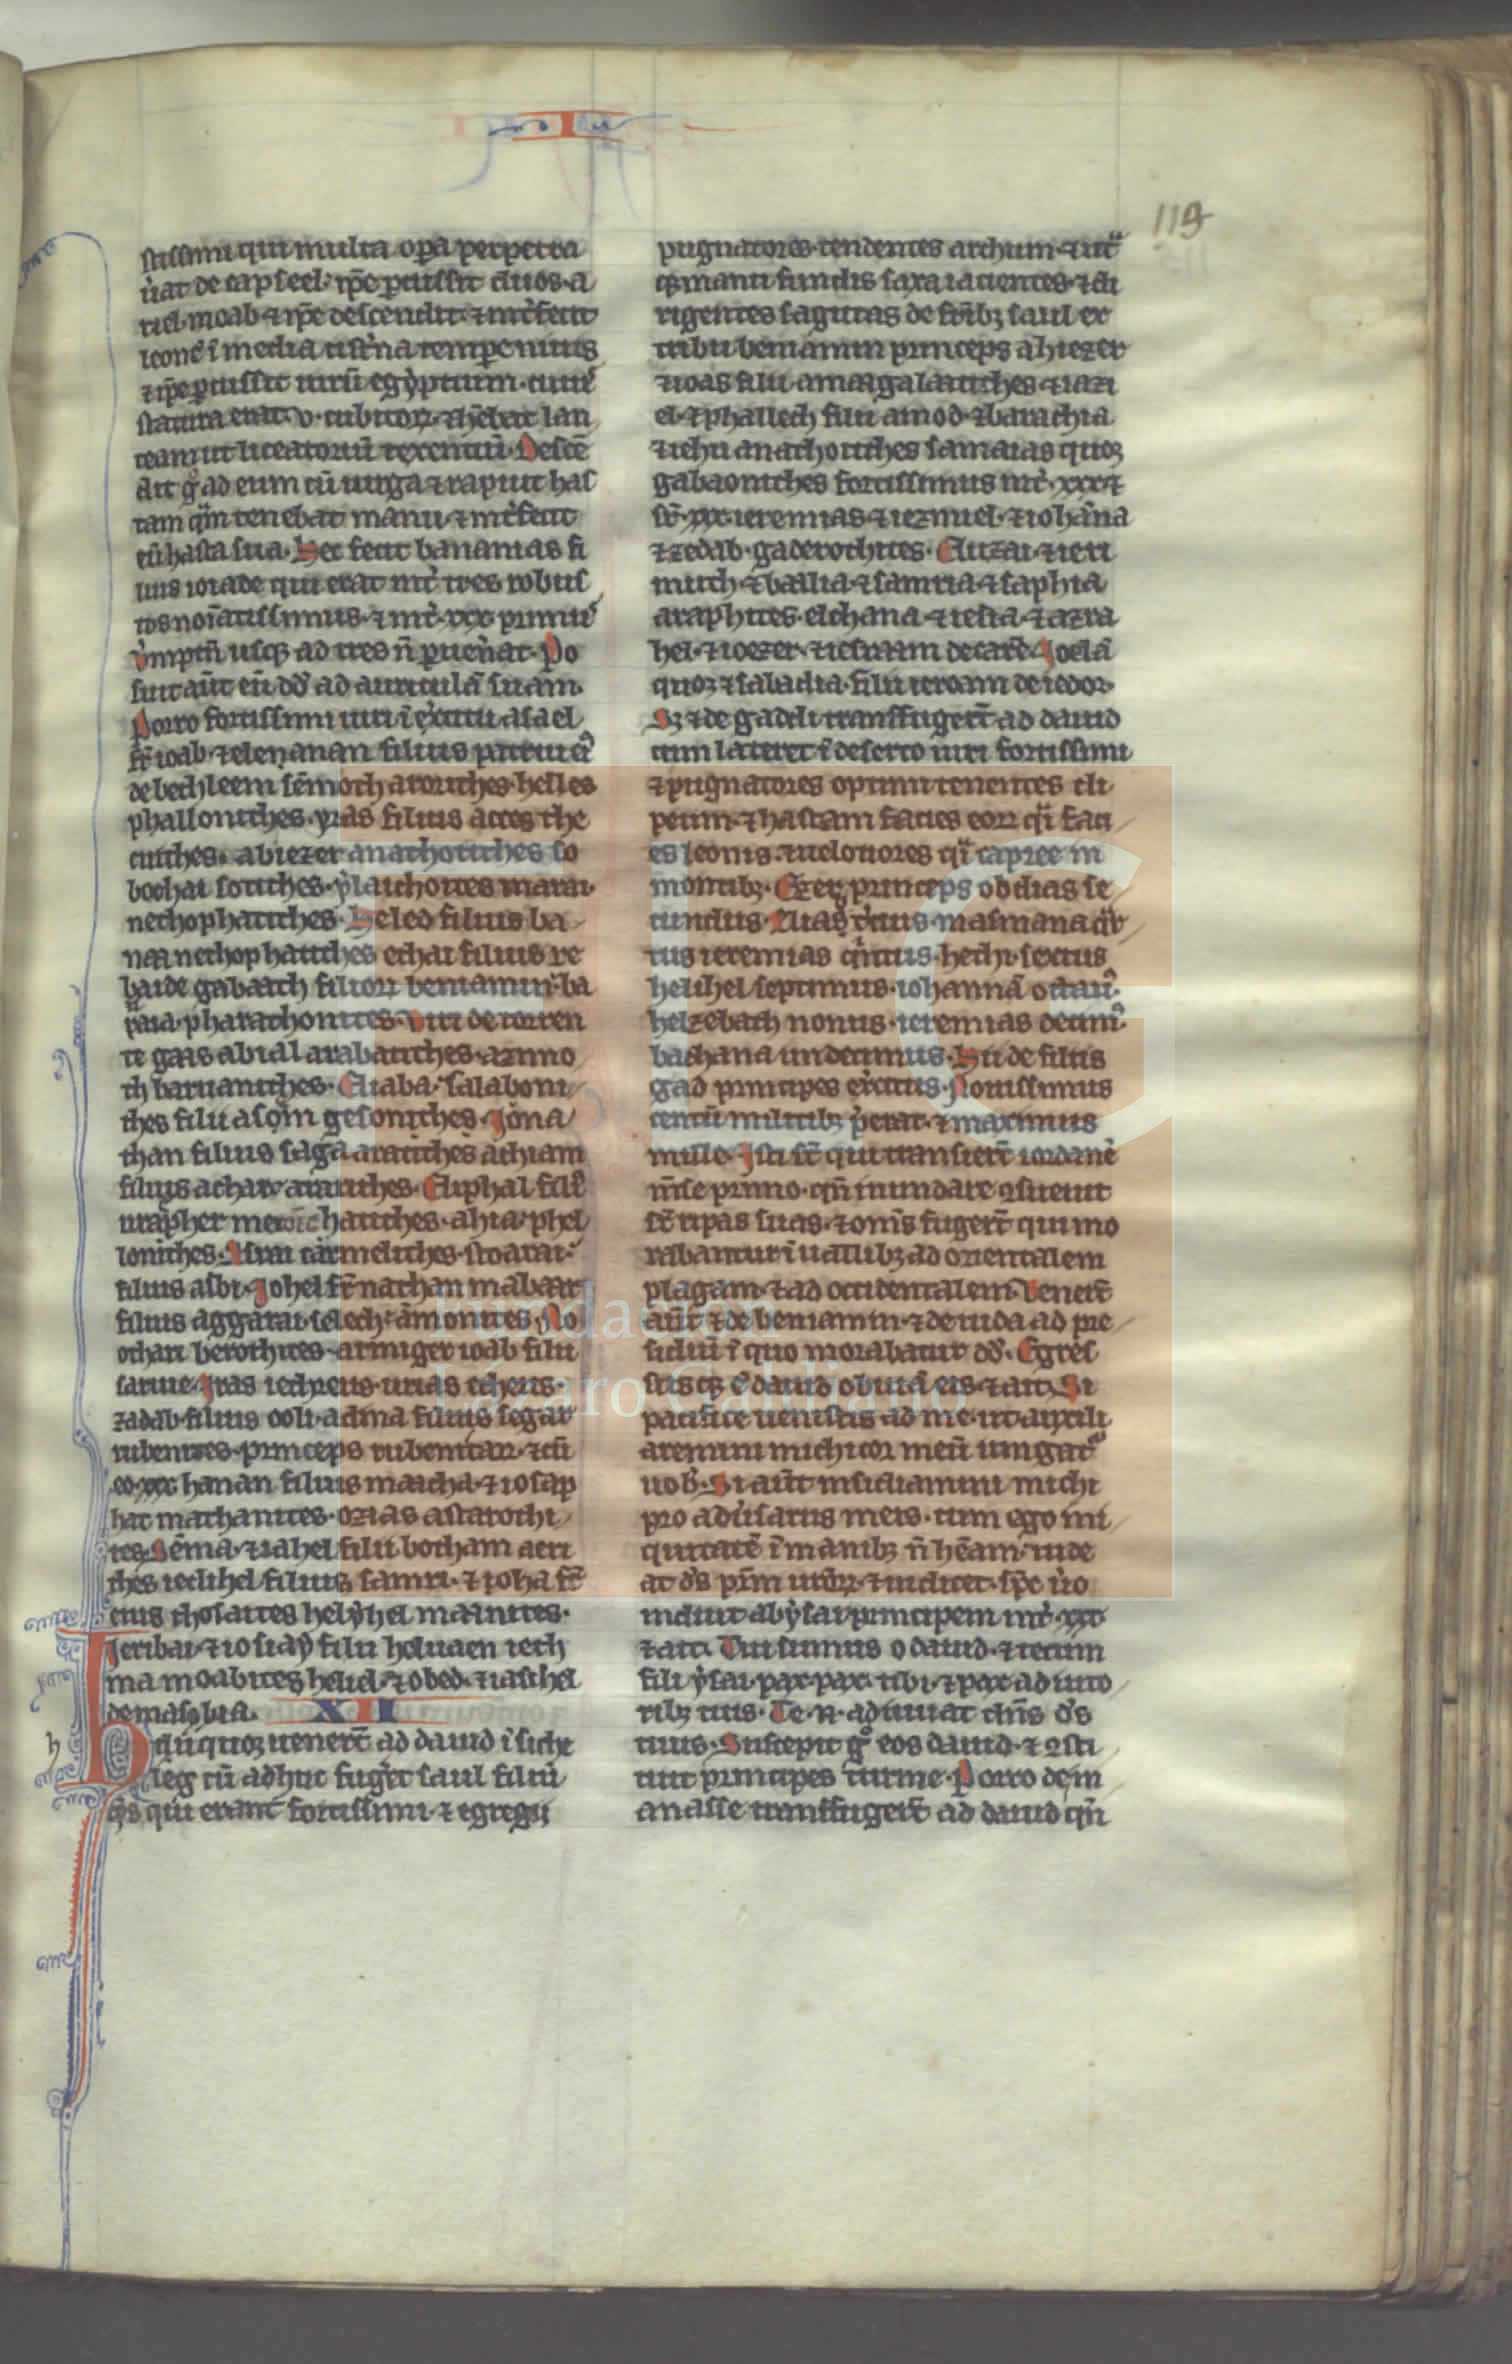 I
119
stissimi qui multa opa perpetra
u̾at de capseel· ip̃e ꝑcussit duos a
riel moab ⁊ ip̃e descendit ⁊ int̾fecit
leonẽ ĩ media cist̾na tempe niuis
⁊ ip̃e ꝑcussit uirũ egyptium cuiꝰ
statura erat v cubitoꝝ ⁊ hẽbat lan
ceam ut liciatoriũ texentiũ· Descẽ
dit gͦ ad eum cũ uirga ⁊ rapuit has
tam qͣm tenebat manu ⁊ int̾fecit
eũ hasta sua· Hec fecit bananias fi
lius ioiade qui erat int̾ tres robus
tos noĩatissimus ⁊ int̾ xxx primuꝰ
u̾mptñ usqꝫ ad tres ñ ꝑuen̾at· Po
suit aũt eũ dd̾ ad auriculã suam·
Porro fortissimi uiri ĩ ex̾citu asael
fr̃ ioab ⁊ elenanan filius patrui eiꝰ
de bethleem sẽmoth aroriches· helles
phallonithes· yras filius acces the
cuithes· abiezer anathotithes so
bochai sotithes· ylai ahoites marai·
nethophatithes· Heled filius ba
naa nethophatithes ethai filius re
baide gabaath filioꝝ beniamin· ba
naia pharathonites· Uiri de torren
te gaas abial arabatithes· azmo
th baruamithes· Eliaba salaboni
thes filii asom gesonithes· Jona
than filius saga ararithes ahiam
filius achar ararithes· Eliphal filiꝰ
ur apher mecorahatithes· ahia phel
lonithes· Asrai carmelithes· noarai
filius asbi· Johel fr̃ nathan mabaar
filius aggarai selech ãmonites· No
othari berothites armiger ioab filii
saruie· Jras iethreus· urias etheus·
zadab filius ooli· adina filius segar
rubenites· princeps rubenitaꝝ ⁊ cũ
eo· xxx hanan filius maacha ⁊ iosap
hat mathanites· ozias astarothi
tes· Sẽma ⁊ iahel filii botham aeri
thes iedihel filius samri· ⁊ ioha fr̃
eius thosaites helyhel maanites·
Jeribai ⁊ iosiay filii heluaen ieth
ma moabites heliel ⁊ obed ⁊ iasihel
de masobia· XII
h
Hii quoqꝫ uener̃t ad dauid ĩ siche
leg cũ adhuc fug̾et saul filiũ
cys qui erant fortissimi ⁊ egregii
pugnatores tendentes archum ⁊ utͣ
qꝫ manu fundis saxa iacientes ⁊ di
rigentes sagittas de fr̃ibꝫ saul ex
tribu beniamin princeps ahiezer
⁊ ioas filii amaagalatithes ⁊ iazi
el ⁊ phallech filii amod ⁊ barachia
⁊ iehu anathotithes samaias quoqꝫ
gabaonithes fortissimus int̾ xxx ⁊
sr̃ xxx ieremias ⁊ iezihiel ⁊ iohãna
⁊ zedab gaderothites· Eluzai ⁊ ieri
muth ⁊ ballia ⁊ samria ⁊ saphia
araphites· elchana ⁊ iesia ⁊ azra
hel ⁊ ioezer ⁊ iesraam de carẽ· Joelã
quoqꝫ ⁊ sabadia filii ieroam de iedor·
Sꝫ ⁊ de gaddi transfuger̃t ad dauid
cum lateret ĩ deserto uiri fortissimi
⁊ pugnatores optimi tenentes cli
peum ⁊ hastam facies eoꝝ qͣi faci
es leonis ⁊ uelociores qͣi capree in
montibꝫ· Ezer princeps obdias se
cundus· Eliab t̾cius· masmana qͣr
tus ieremias qͥntus· hethi sextus
helihel septimus iohannã octauꝰ
helzebath nonus· ieremias decimꝰ
bachana undecimus· Hii de filiis
gad principes ex̾citus· Nouissimus
centũ militibꝫ p̾erat ⁊ maximus
mille· Jsti sr̃ qui transier̃t iordanẽ
m̃se primo· qñ inundare ꝯsueuit
sr̃ ripas suas ⁊ om̃s fuger̃t qui mo
rabantur ĩ uallibꝫ ad orientalem
plagam ⁊ ad occidentalem· Uener̃t
aũt ⁊ de beniamin ⁊ de iuda ad pre
sidiũ ĩ quo morabatur dd̾· Egres
susqꝫ ẽ dauid obuiã eis ⁊ ait· Si
pacifice uenistis ad me ut auxili
aremini michi cor meũ iungatͬ
uob̾· Si aũt insidiamini michi
pro adu̾sariis meis cum ego ini
quitatẽ ĩ manibꝫ ñ hẽam iude
at ds̾ pr̃m nr̃oꝝ ⁊ iudicet· sp̃c u̾o
induit abysai principem int̾ xxx
⁊ ait· Tui sumus o dauid ⁊ tecum
fili ysai· pax pax tibi ⁊ pax adiuto
ribꝫ tuis· Te· n· adiuuat dñs ds̾
tuus· Suscepit gͦ eos dauid ⁊ ꝯsti
tuit principes turme· Porro de m
anasse transfuger̃t ad dauid qñ
Fundación
Lázaro Galdiano